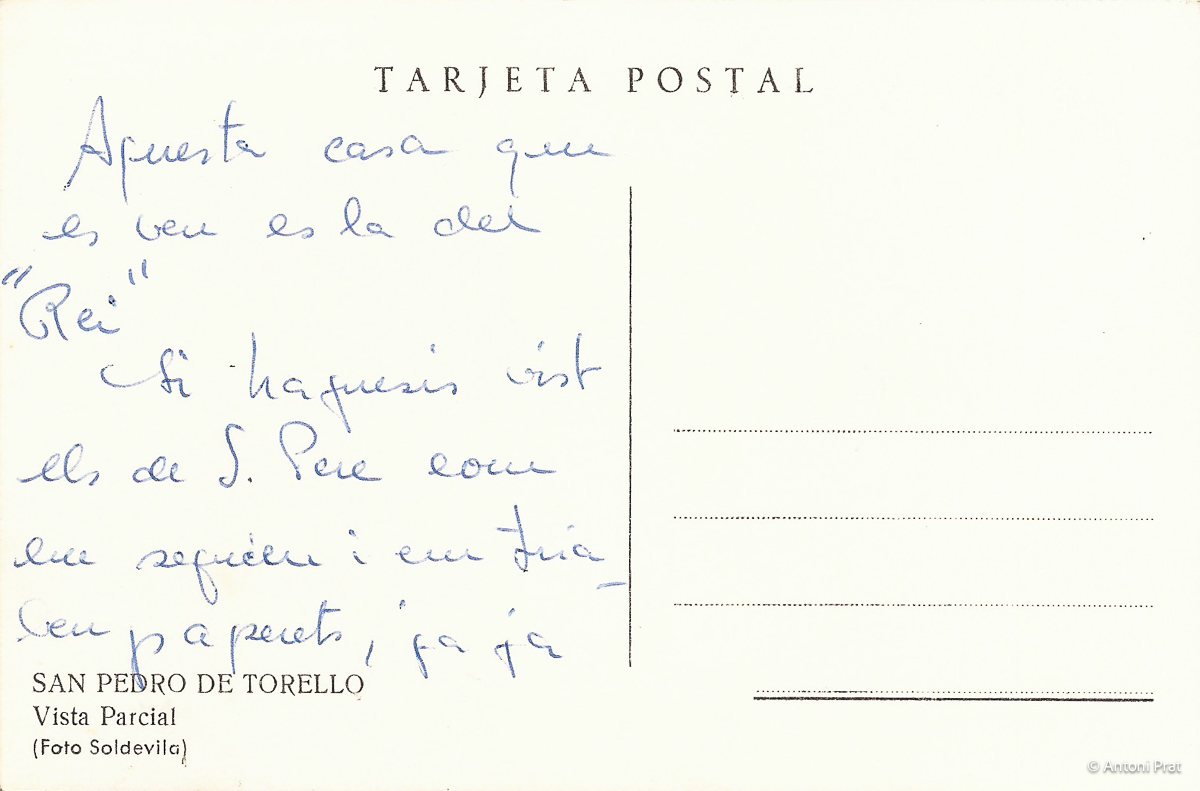 TARJETA POSTAL
Aquesta casa que
es veu es la del
"Rei"
Si haguesis vist
els de S. Pere com
em seguien i em tria-
ven paperets, ja ja
SAN PEDRO DE TORELLO
Vista Parcial
(Foto Soldevila)
© Antoni Prat